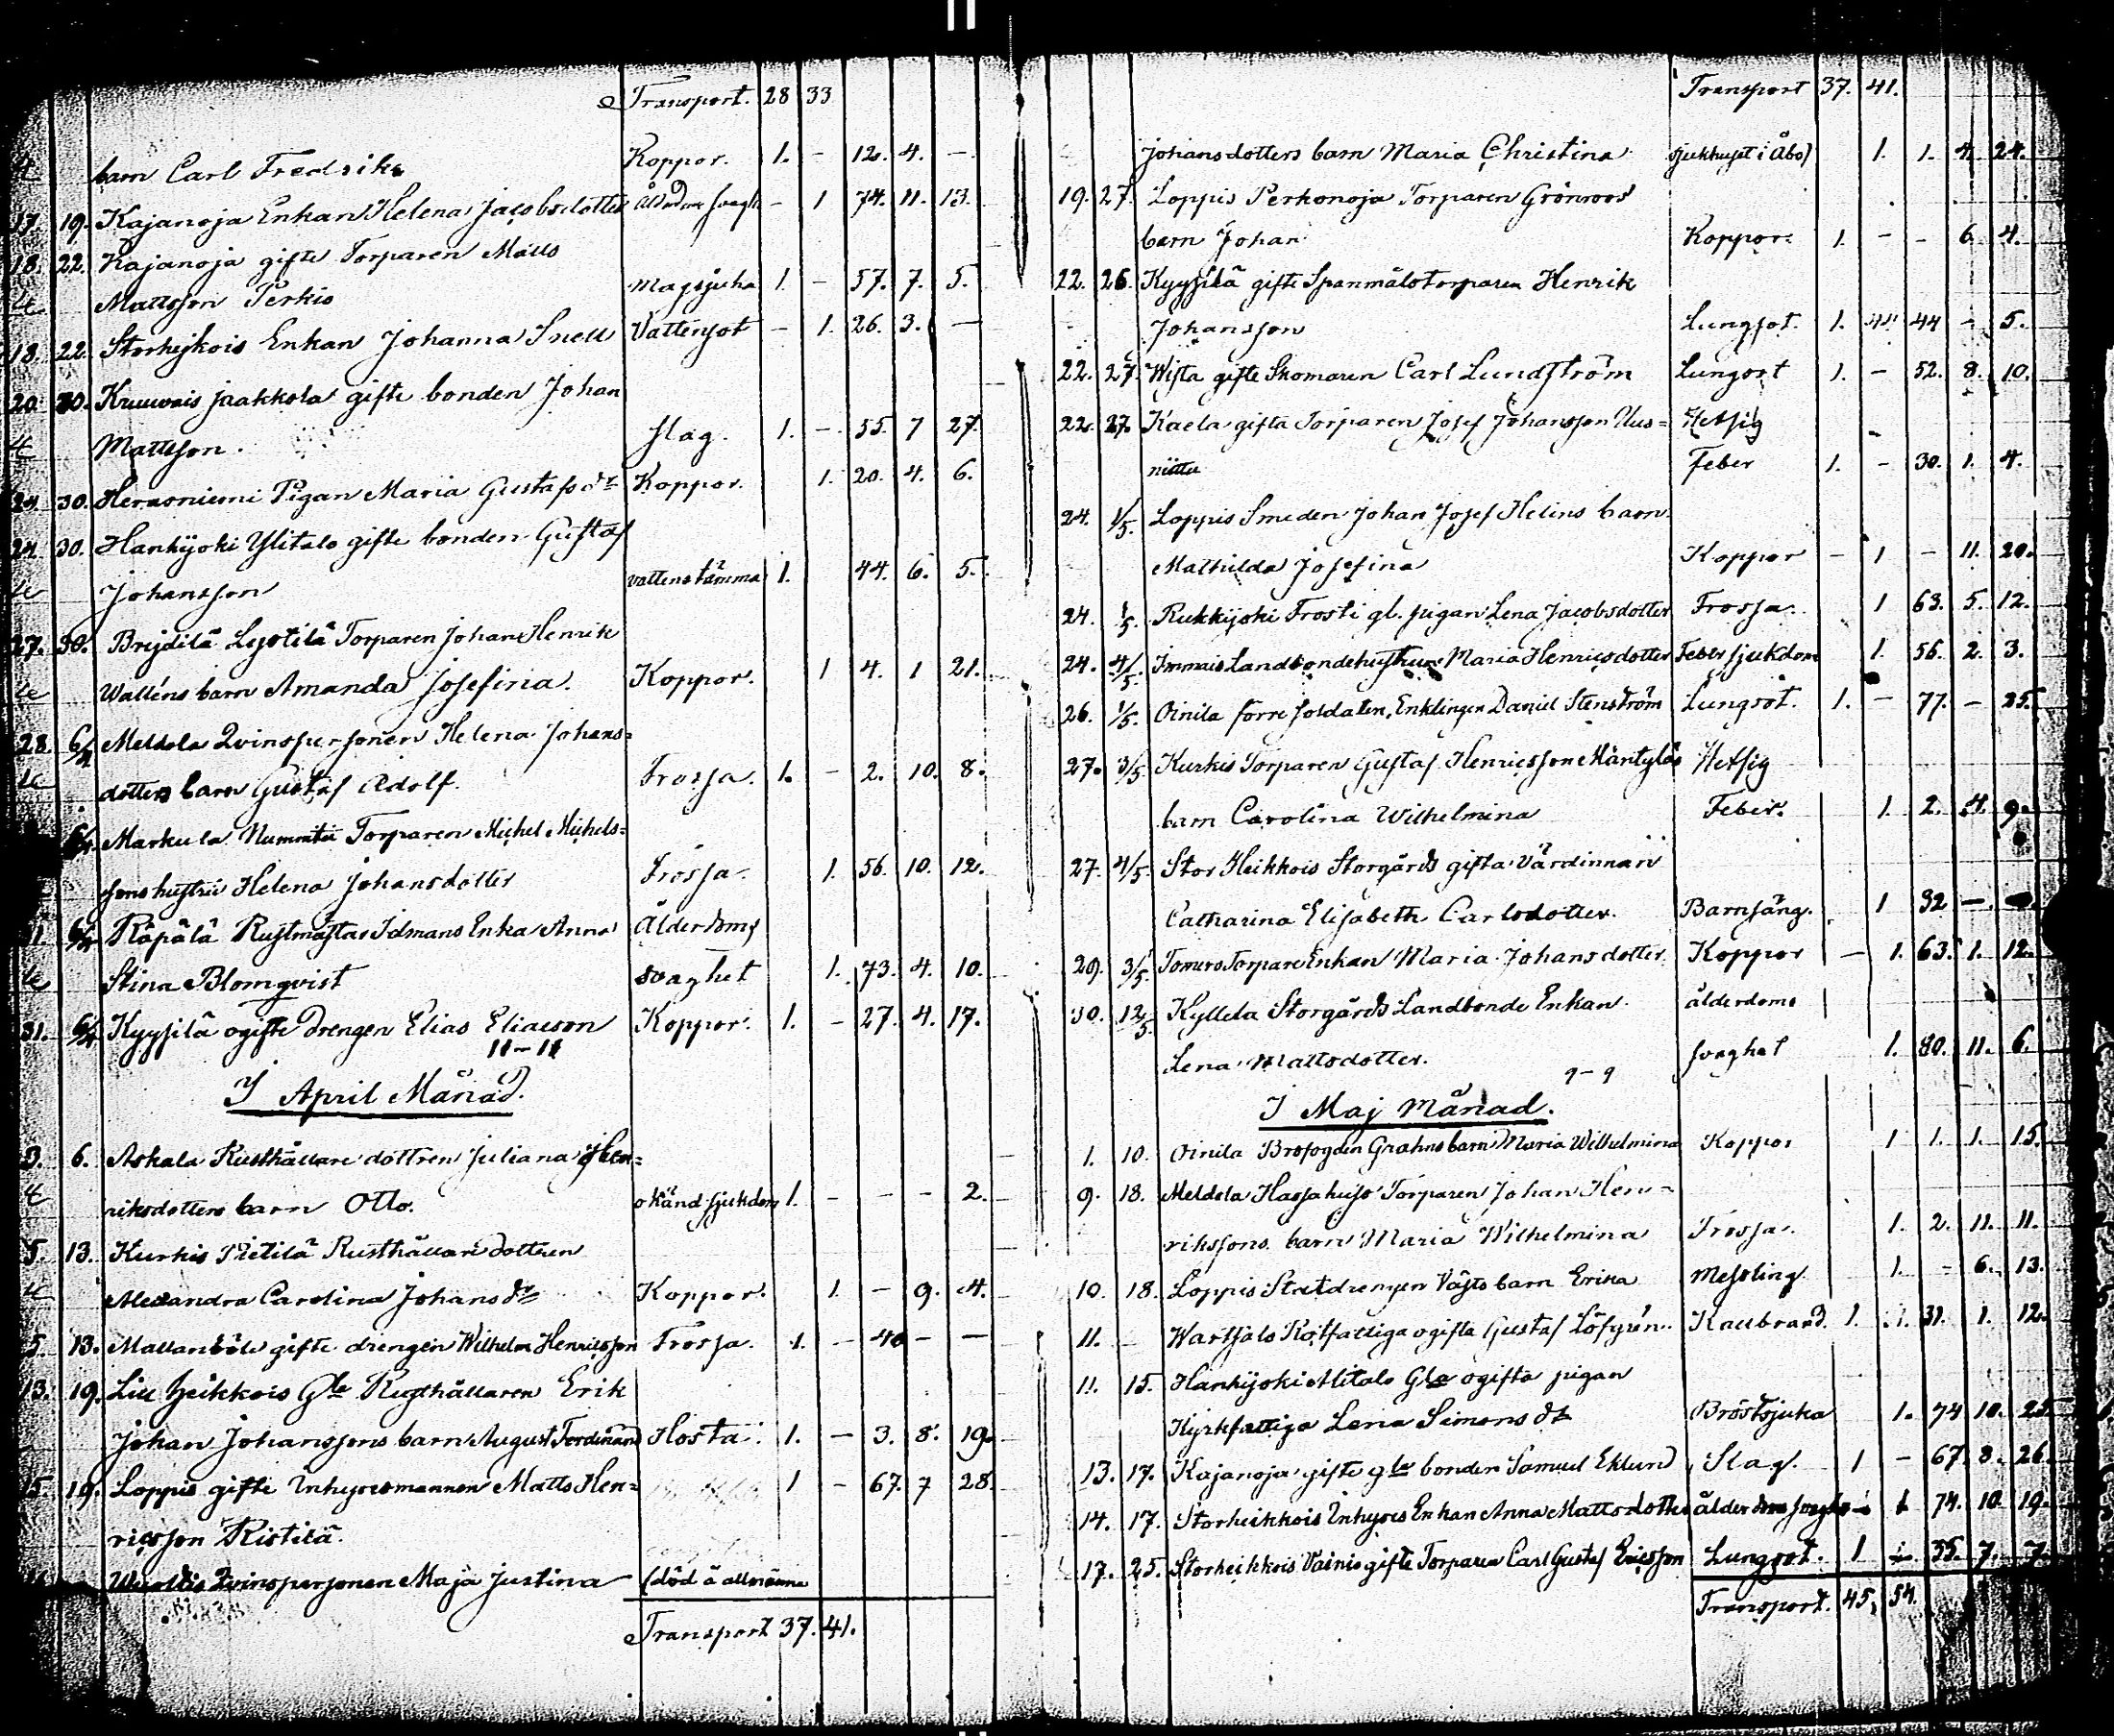 Transport. 28 33
4 barn Carl Fredrik Koppor. 1. - 12. 4. -
17. 19. Kajanoja Enkan Helena Jacobsdotter - 1 74. 11. 13.
18. 22. Kajanoja gifte Torparen Matts
Mattsson Perkio magsjuka 1. - 57. 7. 5.
18. 22. Storhejkois Enkan Johanna Snell Vattensot - 1. 26. 3. -
20 30. Kruuvais Jaakkola gifte bonden Johan
Mattsson. slag. 1. - 55. 7 27.
24. 30. Hermoniemi Pigan Maria Gustafsdr Koppor. 1. 20. 4. 6.
24. 30. Hankijoki Ylitalo gifte bonden Gustaf
Johansson vattenstämma 1. 44. 6. 5.
27. 30. Brejdilä Lejotilä Torparen Johan Henrik
Walléns barn Amanda Josefina. Koppor. 1 4. 1 21.
28. 6/4 Meldola Qvinspersonen Helena Johans=
dotters barn Gustaf Adolf. Trossa. 1. - 2. 10. 8.
6/4 Markula Nummita Torparen Michel Michels=
sons hustru Helena Johansdotter Trossa. 1. 56. 10. 12.
31. 6/4 Räpälä Rustmästar Idmans Enka Anna Ålderdoms
Stina Blomqvist svaghet 1. 73. 4. 10.
31. 6/4 Kyysilä ogifte drengen Elias Eliasson Koppor. 1. - 27. 4. 17.
11-11
I April Månad.
3. 6. Askala Rusthållare dottren Juliana Hen=
riksdotters barn Otto. okänd sjukdom 1. - - - 2.
5. 13. Kurkis Pietilä Rusthållare dottren
Alexandra Carolina Johansdr Koppor. 1. - 9. 4.
5. 13. Mallanböle gifte drengen Wilhelm Henricsson Trossa. 1. - 40 - -
13. 19. Lill heikkois Gle Rusthållaren Erik
Johan Johanssons barn August Ferdinand Hosta. 1. - 3. 8. 19.
15. 19. Loppis gifte Inhysesmannen Matts Hen=
ricsson Ristilä. 1 - 67. 7 28.
Qvinspersonen Maja Justina (död å allmänna
Transport 37. 41.
Transport 37. 41.
Johansdotters barn Maria Christina sjukhuset i Åbo) 1. 1. 4. 24.
19. 27. Loppis Perkonoja Torparen Grönroos
barn Johan Koppor. 1. - - 6. 4.
22. 26. Kyysilä gifte Spanmålstorparen Henrik
Johansson Lungsot. 1. 44 - 5.
22. 27. Wista gifte Skomaren Carl Lundström Lungsot 1. - 52. 8. 10.
22. 27. Kaela gifta Torparen Josef Johansson Uus= Hetsig
niittu Feber 1. - 30. 1. 4.
24. 1/5. Loppis Smeden Johan Josef Helins barn
Mathilda Josefina Koppor - 1 - 11. 20.
24. 1/5. Rukkijoki Frosti gl. pigan Lena Jacobsdotter Trossa. 1 63. 5. 12.
24. 4/5. Immais Landbondehustrun Maria Henricsdotter Feber sjukdom 1. 56. 2. 3.
26. 1/5. Oinila förre soldaten, Enklingen Daniel Stenström Lungsot. 1. - 77. - 25.
27. 3/5. Kurkis Torparen Gustaf Henricsson Mäntyläs Hetsig
barn Carolina Wilhelmina Feber. 1. 2. 4. 9.
27. 4/5. Stor Heikkois Storgårds gifta värdinnan
Catharina Elisabeth Carlsdotter. Barnsäng. 1 32 -
29. 3/5. Tomero Torpare Enkan Maria Johansdotter Koppor - 1. 63. 1. 12.
30. 12/5. Kyllela Storgårds Landbonde Enkan ålderdoms
Lena Mattsdotter. svaghet 1. 80. 11. 6.
9-9
I Maj Månad.
1. 10. Oinila Brofogden Grahns barn Maria Wilhelmina Koppor 1 1. 1. 15.
9. 18. Meldola Hassahujo Torparen Johan Hen=
rikssons barn Maria Wilhelmina Trossa. 1. 2. 11. 11.
10. 18. Loppis Statdrengen Vägts barn Erika Messling 1. - 6. 13.
11. Wartsala Rotfattiga ogifta Gustaf Löfgren. Kallbrand. 1. 31. 1. 12.
11. 15. Hankijoki Alitalo Gla ogifta pigan
Kyrkfattiga Lena Simonsdr Bröstsjuka 1. 74 10. 25.
13. 17. Kajanoja gifte gle bonden Samuel Eklund Slag. 1 - 67. 8. 26.
14. 17. Storheikkois Inhyses Enkan Anna Mattsdotter 1 74. 10 19.
17. 25. Storheikkois Vainio gifte Torparen Carl Gustaf Ericsson Lungsot. 1 - 35. 7. 7.
Transport. 45. 54.